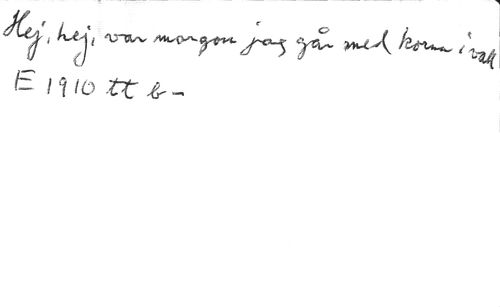 Hej, hej, var morgon jag går med korna i vall
E 1910 tt b-